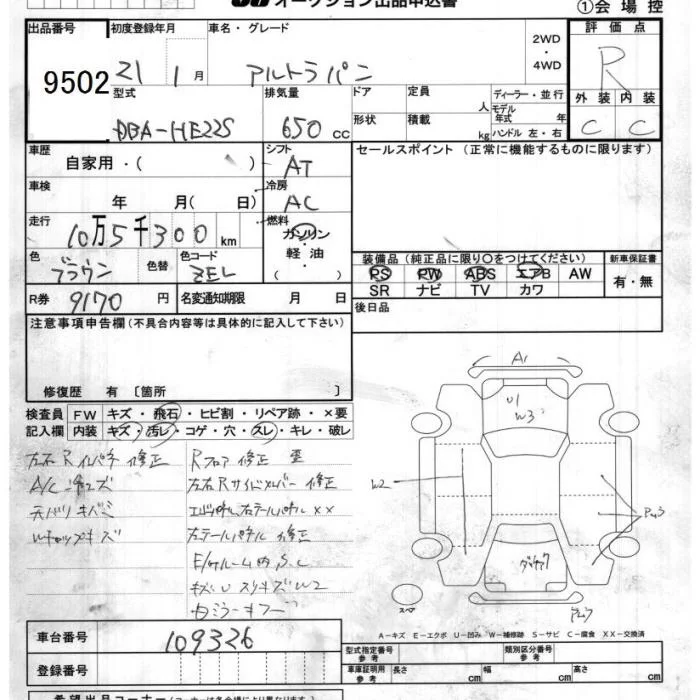 オークション出品申込書
①会場控
出品番号 初度登録年月 車名・グレード 評価点
9502 21 1月 アルトラパン 2WD・4WD R
型式 排気量 ドア 定員 人 ディーラー・並行 外装 内装
DBA-HE22S 650 cc 形状 積載 kg モデル年式 年 ハンドル 左・右 C C
車歴 自家用・( ) シフト AT セールスポイント (正常に機能するものに限ります)
車検 年 月( 日) 冷房 AC
走行 10万5千300km 燃料 ガソリン・軽油 ( )
色 ブラウン 色替 色コード ZEL
装備品 (純正品に限り○をつけてください) 新車保証書
PS PW ABS エアB AW 有・無
SR ナビ TV カワ
R券 9170円 名変通知期限 月 日 後日品
注意事項申告欄(不具合内容等は具体的に記入して下さい)
修復歴 有 〔箇所 〕
検査員 FW キズ・飛石・ヒビ割・リペア跡・×要
記入欄 内装 キズ・汚レ・コゲ・穴・スレ・キレ・破レ
左右Rインパネ 修正 Rフロア 修正
左右Rサイドメンバー 修正
天バリキバミ
左テールパネル 修正
キズU スリキズW2
A1
U1
W3
W2
スペア
A-キズ E-エクボ U-凹み W-補修跡 S-サビ C-腐食 XX-交換済
車台番号 109326
登録番号
型式指定番号 参考 類別区分番号 参考
車庫証明用 参考 長さ cm 幅 cm 高さ cm
希望出品コーナー